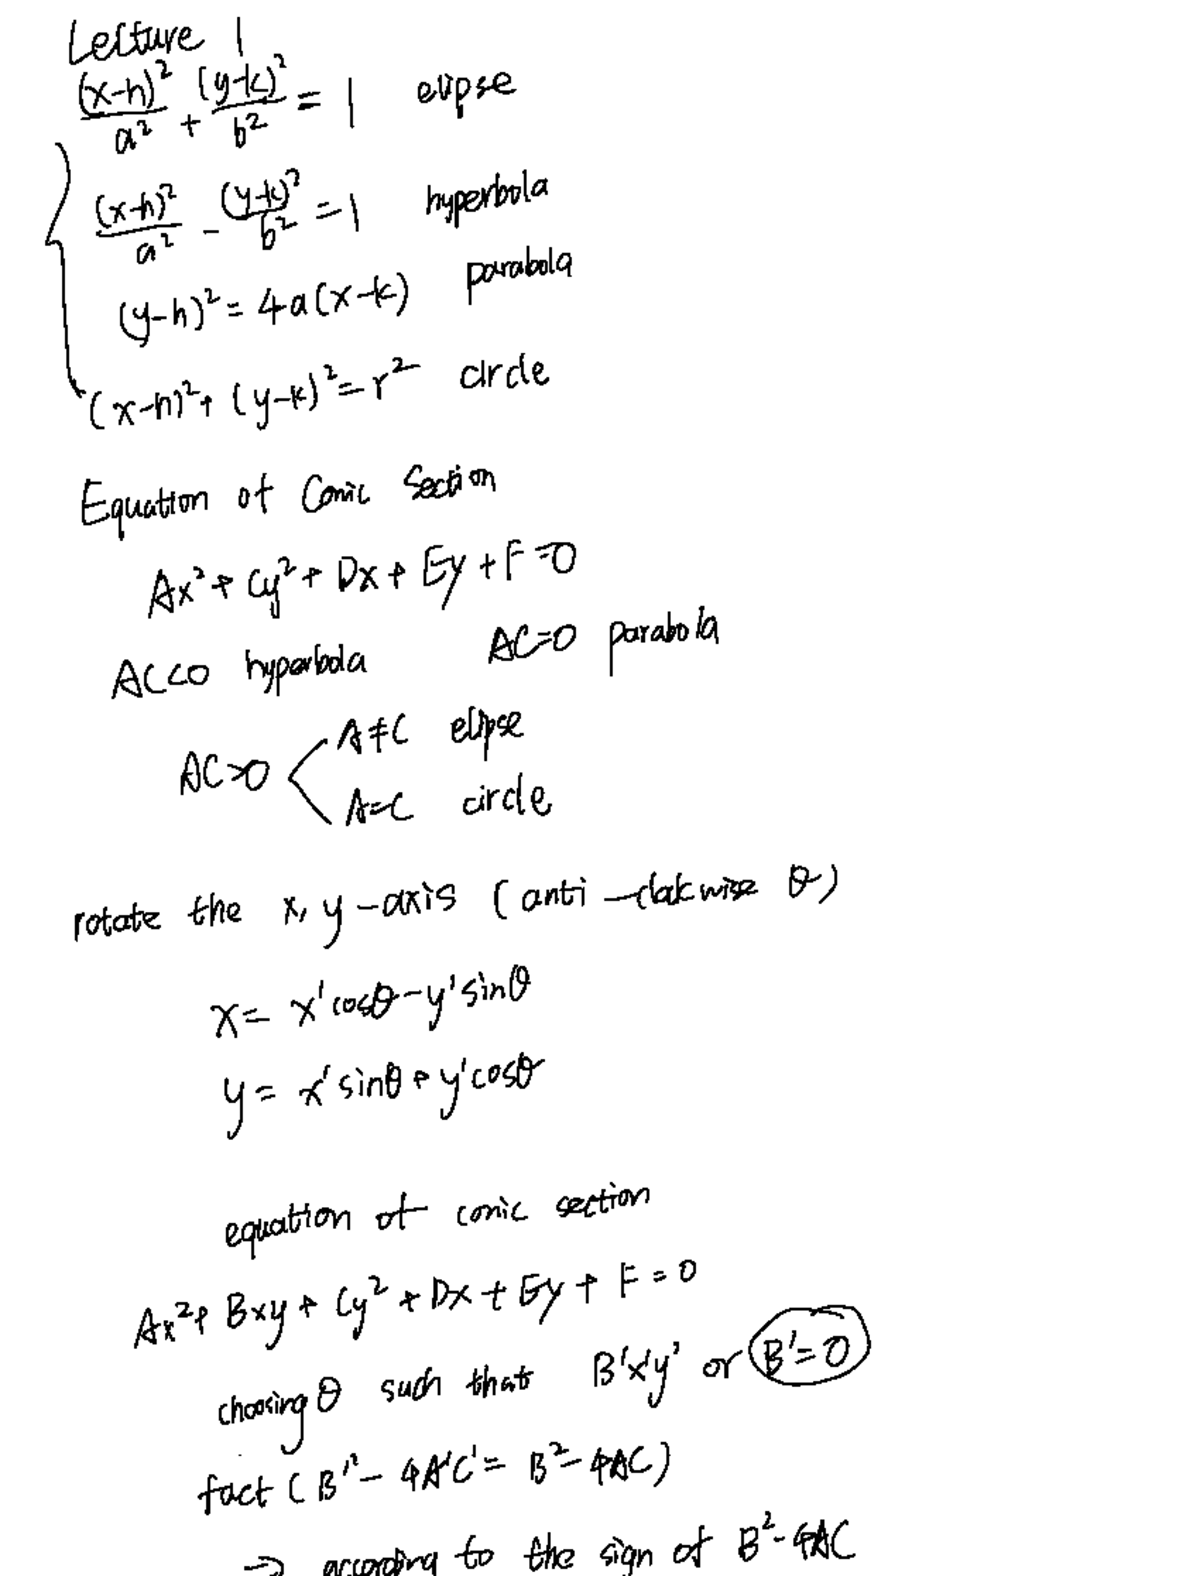 Lecture 1
(x-h)²/a² + (y-k)²/b² = 1 elipse
(x-h)²/a² - (y-k)²/b² = 1 hyperbola
(y-h)² = 4a(x-k) parabola
(x-h)² + (y-k)² = r² circle
Equation of Conic Section
Ax² + Cy² + Dx + Ey + F = 0
AC<0 hyperbola AC=0 parabola
AC>0 A≠C elipse
A=C circle
rotate the x, y-axis (anti-clockwise θ)
x = x'cosθ - y'sinθ
y = x'sinθ + y'cosθ
equation of conic section
Ax² + Bxy + Cy² + Dx + Ey + F = 0
choosing θ such that B'x'y' or B'=0
fact (B'² - 4A'C' = B² - 4AC)
→ according to the sign of B²-4AC